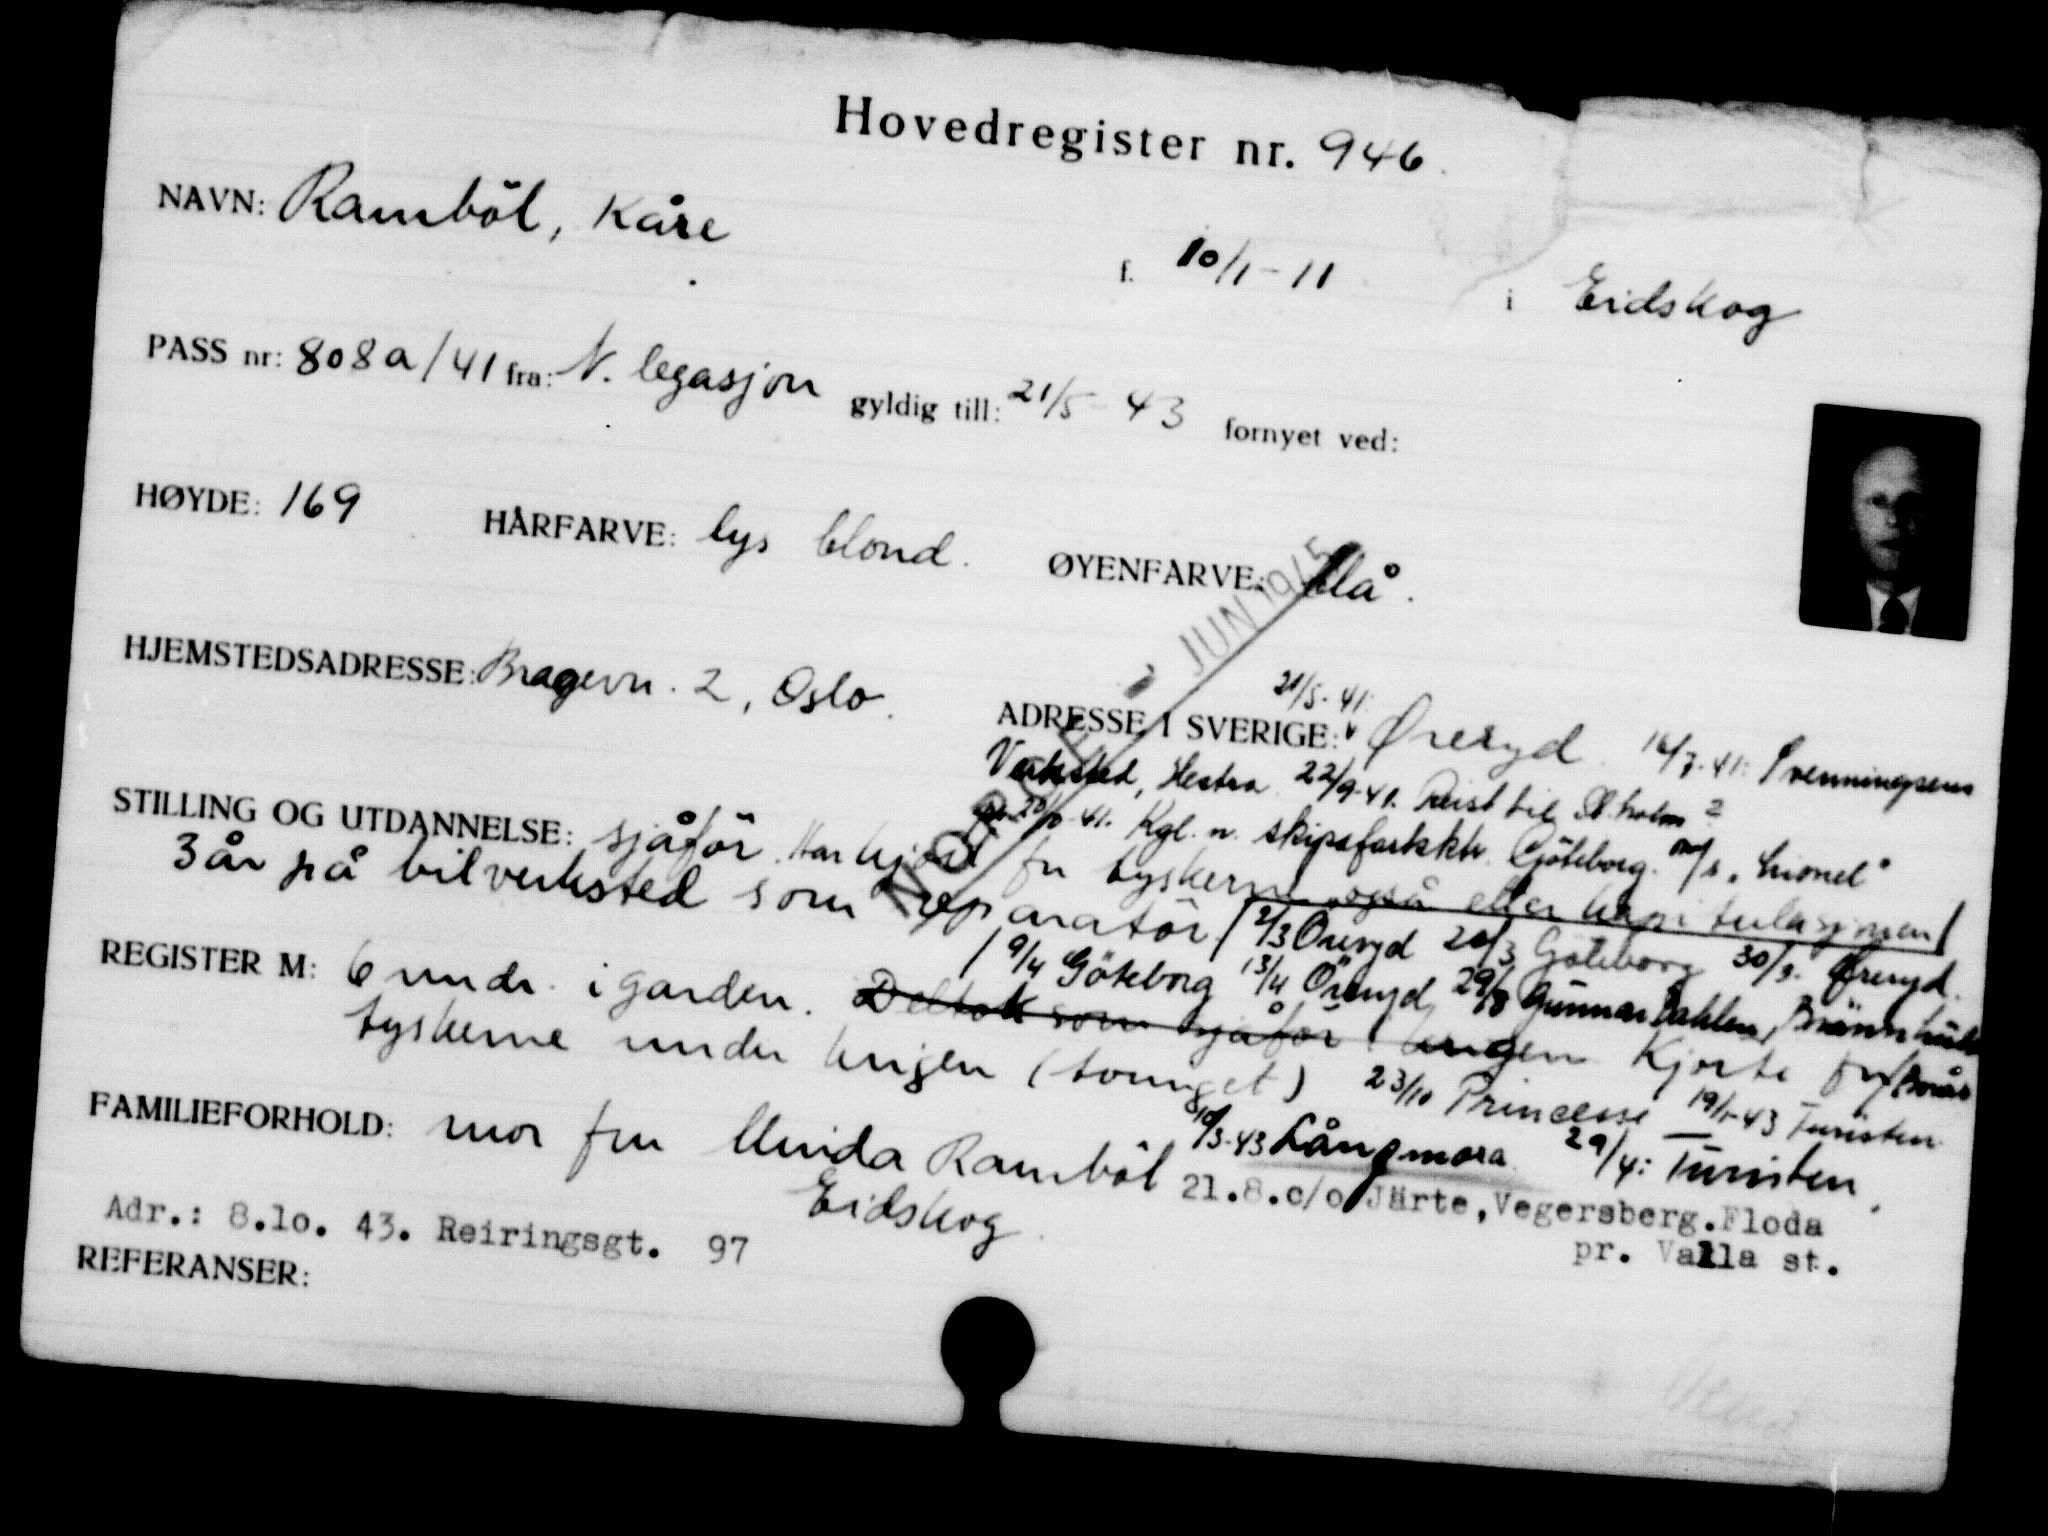 Hovedregister nr. 946.
NAVN: Ramböl, Kåre
f. 10/1-11 i Eidskog
PASS nr: 808a/41 fra: N. legasjon gyldig till: 21/5-43 fornyet ved:
HØYDE: 169 HÅRFARVE: lys blond. ØYENFARVE: blå.
JUN 1945
NORGE
HJEMSTEDSADRESSE: Bragevn. 2, Oslo.
21/5-41.
ADRESSE I SVERIGE: Øreryd. 16/7-41: Svenningsens
Verksted, Hestra. 22/9-41. Reist til St.holm?
41. Kgl. n. skipsfartskktr. Göteborg. m/s "Lionel"
STILLING OG UTDANNELSE: sjåför. Har kjört for tyskerne også etter kapitulasjonen
3 år på bilverksted som reparatör
2/3 Öreryd 20/3 Göteborg 30/3. Øreryd.
9/4 Göteborg 13/4 Öreryd 29/8 Gunnar Dahlen, Brännhult
Borås
REGISTER M: 6 mndr. i garden. Deltok som sjåför i krigen Kjörte for
tyskerne under krigen (tvunget)
23/10 Princesse 19/1-43 Turisten
10/3-43 Långmora. 29/4: Turisten.
FAMILIEFORHOLD: mor fru Minda Ramböl
Eidskog.
21.8.c/o Järte,Vegersberg.Floda
pr. Valla st.
Adr.: 8.lo. 43. Reiringsgt. 97
REFERANSER: